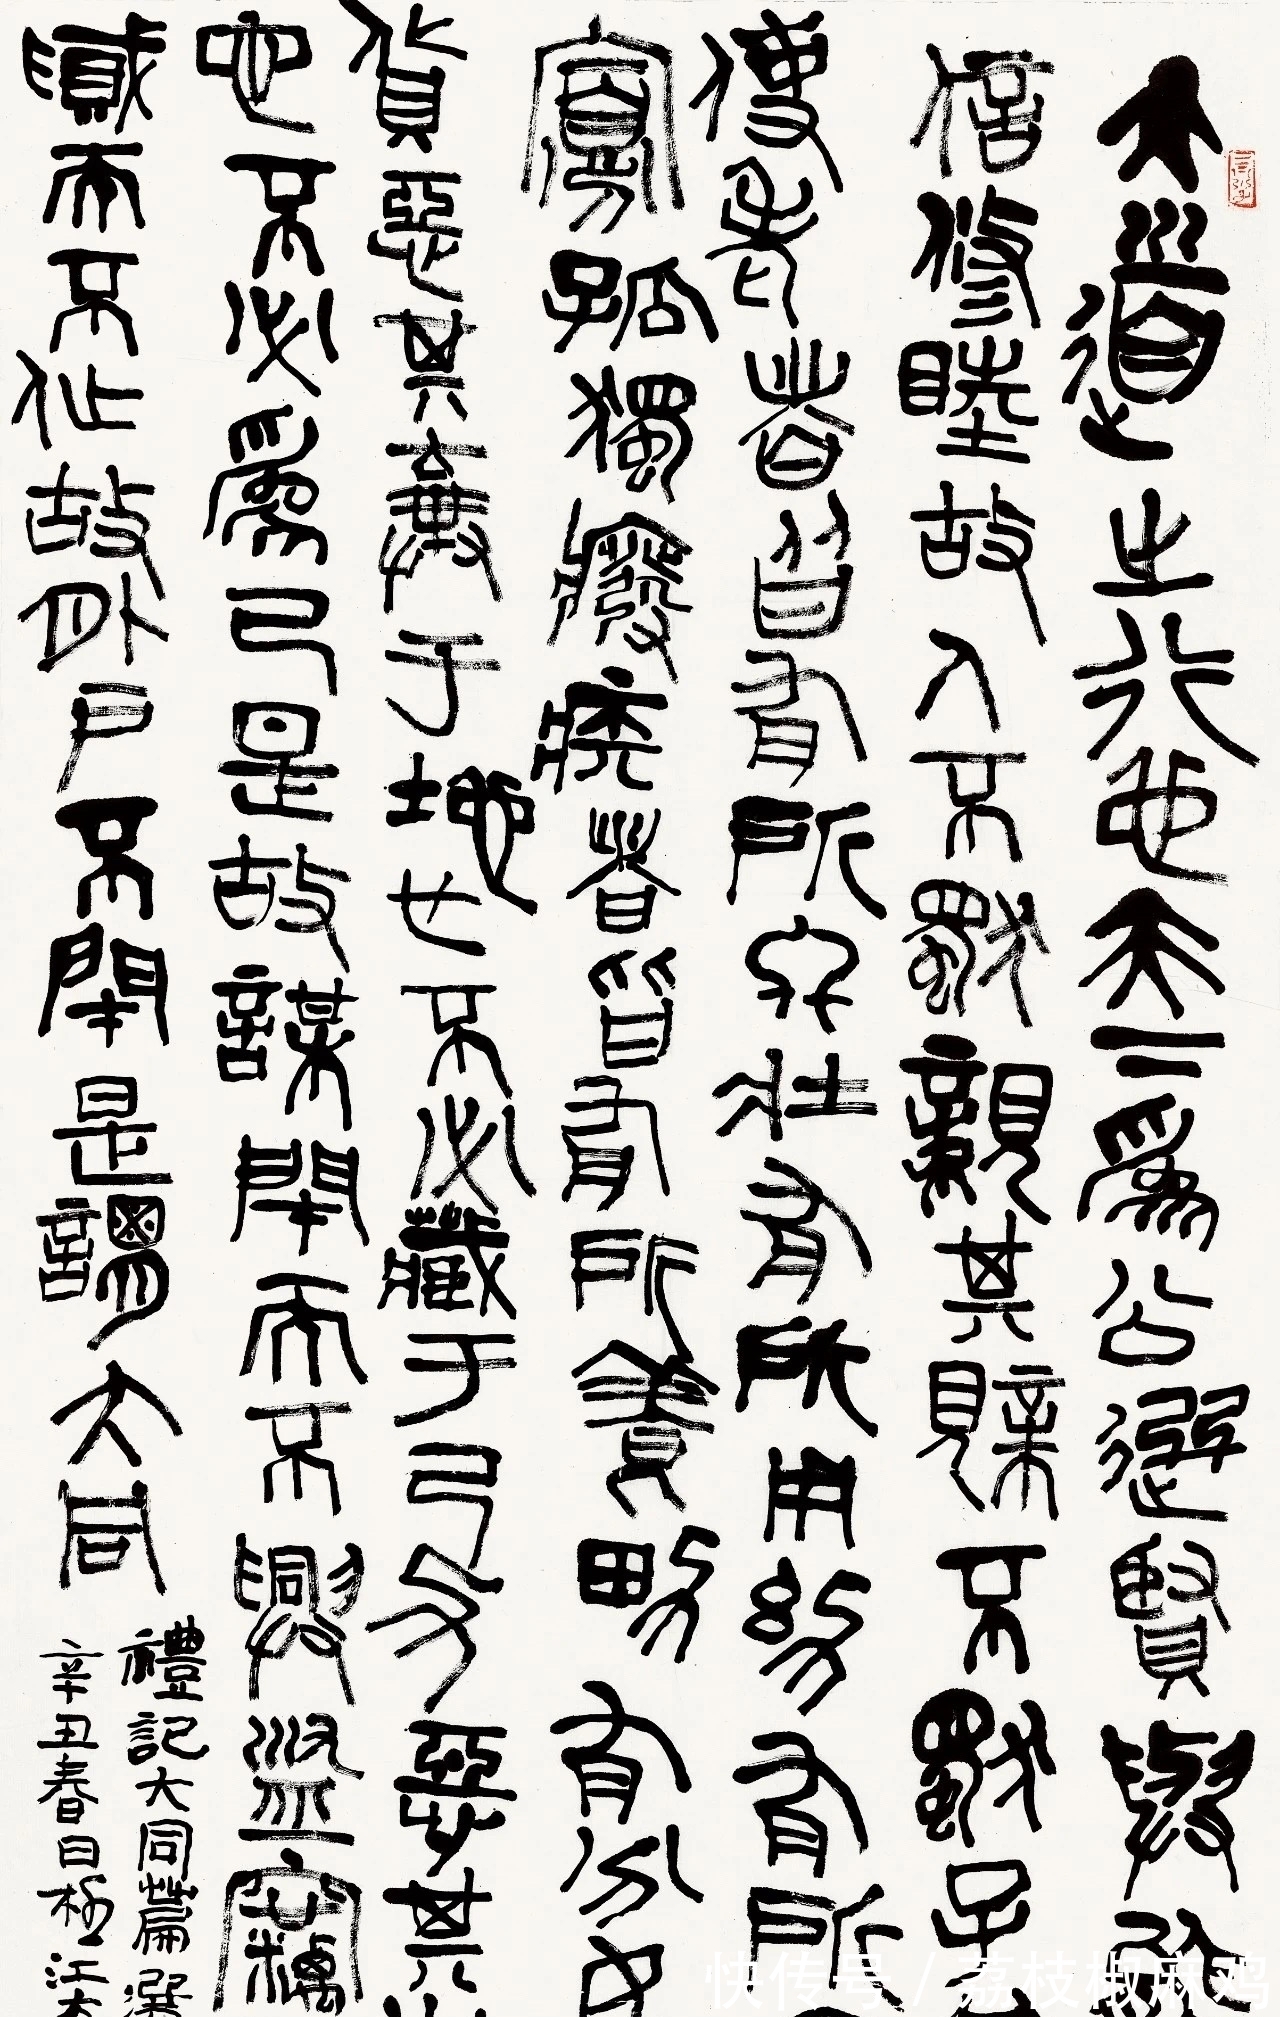 大道之行也天下為公選賢與能
信修睦故人不獨親其親不獨子
使老者皆有所終壯有所用幼有所
寡孤獨廢疾者皆有所養男有分女
貨惡其棄于地也不必藏于己力惡其
也不必為己是故謀閉而不興盜竊
賊而不作故外戶不閉是謂大同
禮記大同篇選
辛丑春日
快传号 / 荔枝椒麻鸡